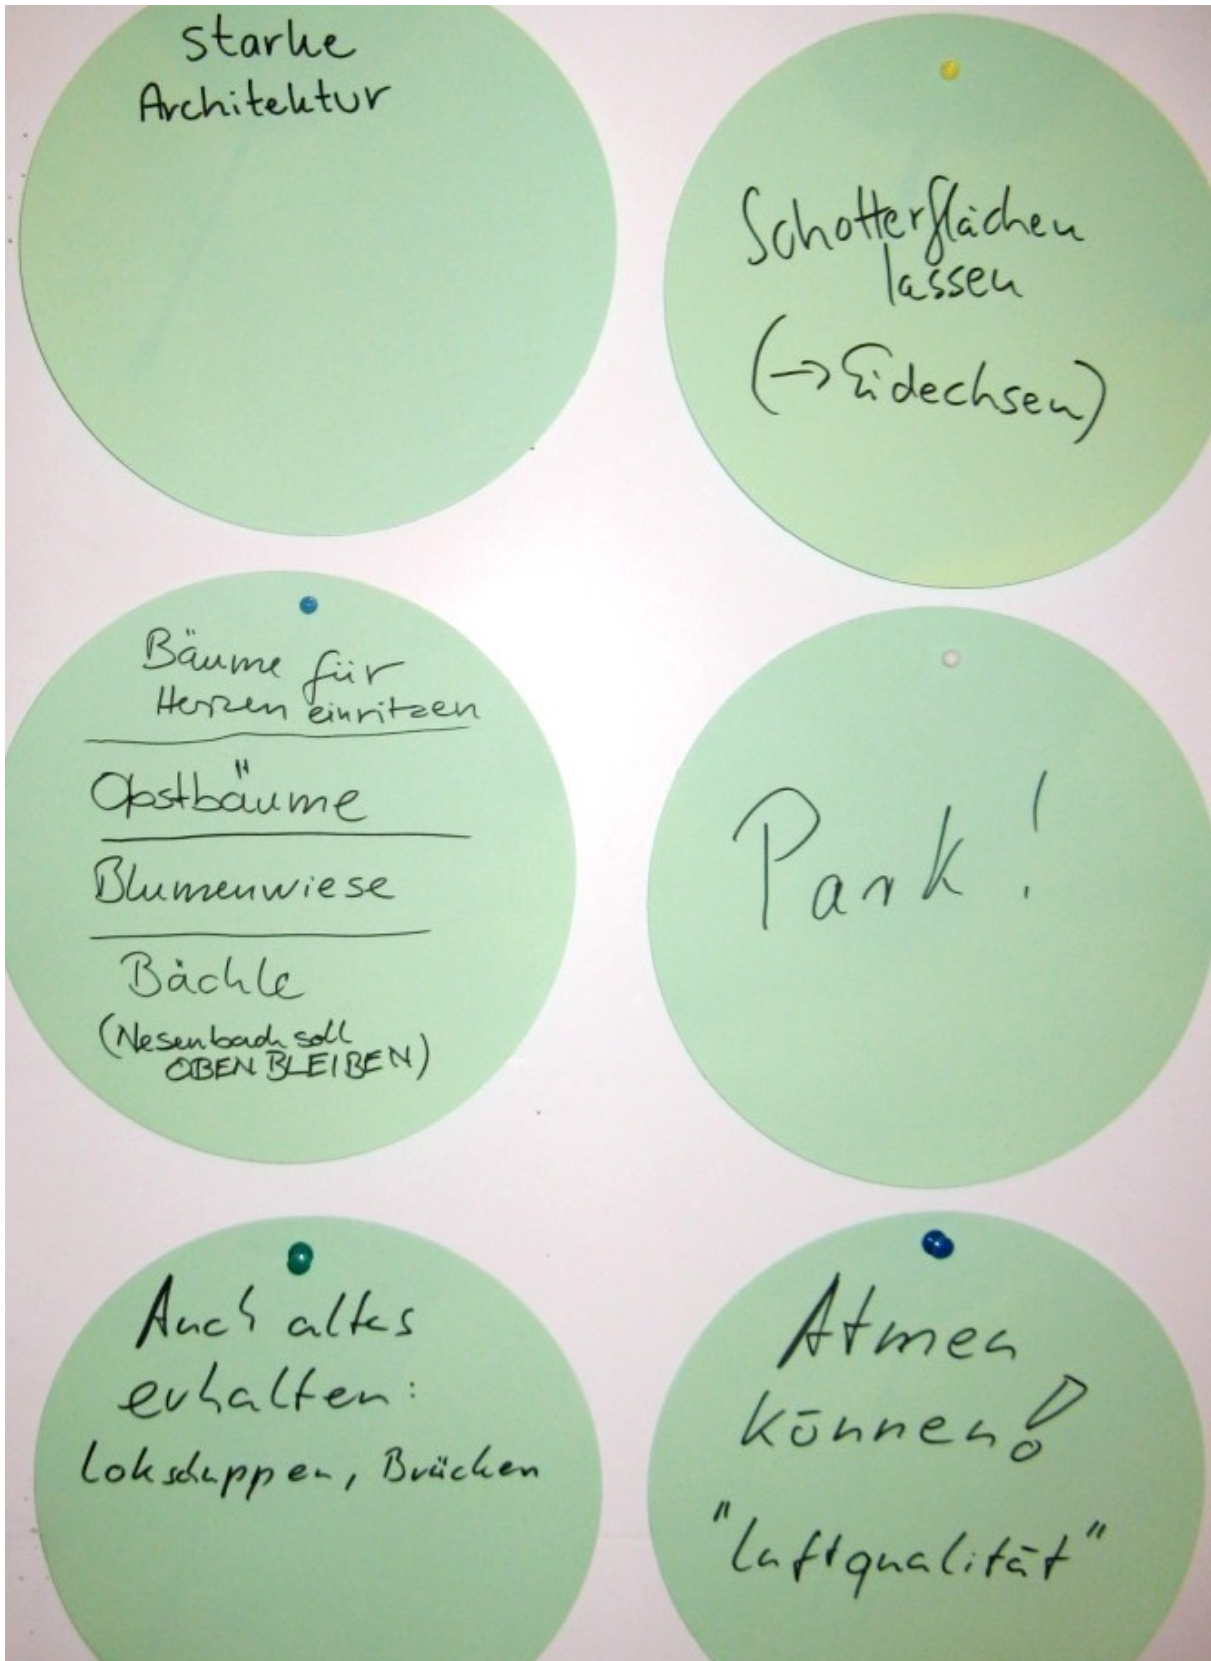 starke
Architektur
Schotterflächen
lassen
(→ Eidechsen)
Bäume für
Herzen einritzen
Obstbäume
Blumenwiese
Bächle
(Nesenbach soll
OBEN BLEIBEN)
Park!
Auch altes
erhalten:
Lokschuppen, Brücken
Atmen
können!
"Luftqualität"